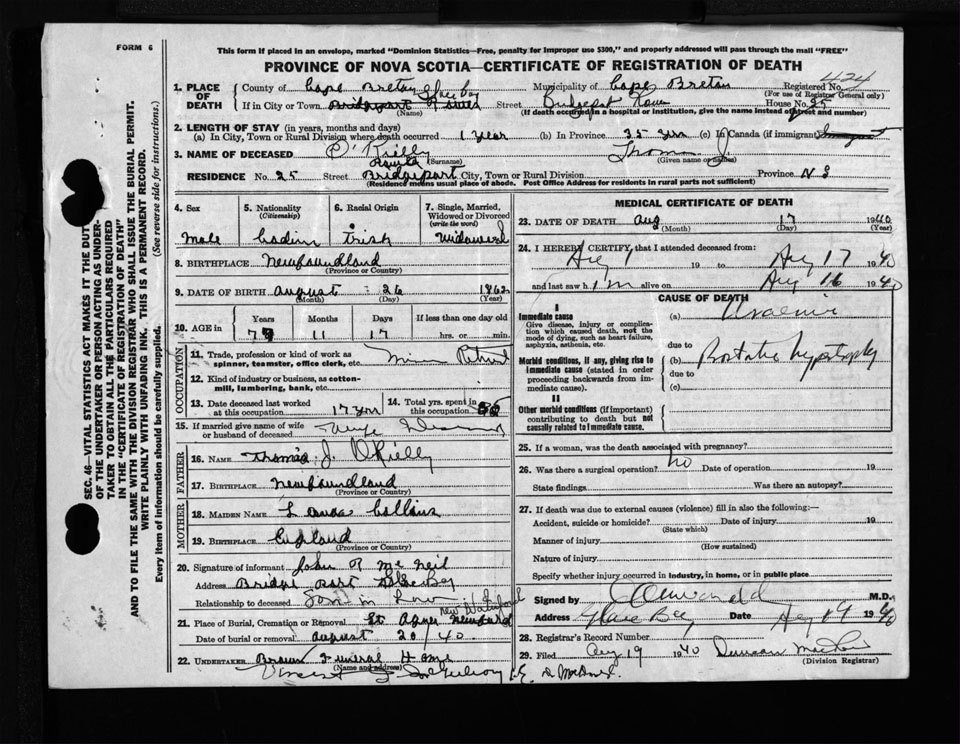 FORM 6
This form if placed in an envelope, marked "Dominion Statistics—Free, penalty for improper use $300," and properly addressed will pass through the mail "FREE"
PROVINCE OF NOVA SCOTIA—CERTIFICATE OF REGISTRATION OF DEATH
424
1. PLACE OF DEATH County of Cape Breton Municipality of Cape Breton Registered No.
(For use of Registrar General only)
Glace Bay
If in City or Town Bridgeport Street House No. 25
(Name) (If death occurred in a hospital or institution, give the name instead of street and number)
2. LENGTH OF STAY (in years, months and days)
(a) In City, Town or Rural Division where death occurred 1 year (b) In Province 35 yrs (c) In Canada (if immigrant)
3. NAME OF DECEASED O'Rielly Thomas J.
(Surname) (Given name or names)
RESIDENCE No. 25 Street Bridgeport City, Town or Rural Division Province N S
(Residence means usual place of abode. Post Office Address for residents in rural parts not sufficient)
4. Sex 5. Nationality (Citizenship) 6. Racial Origin 7. Single, Married, Widowed or Divorced (write the word)
Male Irish Widowed
8. BIRTHPLACE Newfoundland
(Province or Country)
9. DATE OF BIRTH August 26 1862
(Month) (Day) (Year)
10. AGE in Years Months Days If less than one day old
11 17 hrs. or min.
OCCUPATION
11. Trade, profession or kind of work as spinner, teamster, office clerk, etc. Retired
12. Kind of industry or business, as cotton-mill, lumbering, bank, etc.
13. Date deceased last worked at this occupation 17 yrs 14. Total yrs. spent in this occupation
15. If married give name of wife or husband of deceased
FATHER
16. NAME Thomas J. O'Rielly
17. BIRTHPLACE Newfoundland
(Province or Country)
MOTHER
18. MAIDEN NAME Collins
19. BIRTHPLACE England
(Province or Country)
20. Signature of informant John R McNeil
Address Bridgeport Glace Bay
Relationship to deceased Son in Law
New Waterford
21. Place of Burial, Cremation or Removal St Agnes
Date of burial or removal August 20/40.
22. UNDERTAKER Funeral Home
(Name and address)
Vincent
MEDICAL CERTIFICATE OF DEATH
23. DATE OF DEATH Aug 17 1940
(Month) (Day) (Year)
24. I HEREBY CERTIFY, that I attended deceased from:
Aug 1 19 to Aug 17 1940
and last saw him alive on Aug 16 1940
CAUSE OF DEATH
I
Immediate cause (a) Uraemia
Give disease, injury or complication which caused death, not the mode of dying, such as heart failure, asphyxia, asthenia, etc.
due to
Morbid conditions, if any, giving rise to immediate cause (stated in order proceeding backwards from immediate cause).
(b) Prostatic hypertrophy
due to
(c)
II
Other morbid conditions (if important) contributing to death but not causally related to immediate cause.
25. If a woman, was the death associated with pregnancy?
26. Was there a surgical operation? no Date of operation 19
State findings Was there an autopsy?
27. If death was due to external causes (violence) fill in also the following:—
Accident, suicide or homicide? Date of injury 19
(State which)
Manner of injury
(How sustained)
Nature of injury
Specify whether injury occurred in industry, in home, or in public place
Signed by M.D.
Address Glace Bay Date Aug 19 1940
28. Registrar's Record Number
29. Filed Aug 19 1940 Duncan
(Division Registrar)
SEC. 46—VITAL STATISTICS ACT MAKES IT THE DUTY
OF THE UNDERTAKER OR PERSON ACTING AS UNDER-
TAKER TO OBTAIN ALL THE PARTICULARS REQUIRED
IN THE "CERTIFICATE OF REGISTRATION OF DEATH"
AND TO FILE THE SAME WITH THE DIVISION REGISTRAR WHO SHALL ISSUE THE BURIAL PERMIT.
WRITE PLAINLY WITH UNFADING INK. THIS IS A PERMANENT RECORD.
Every item of information should be carefully supplied. (See reverse side for instructions.)